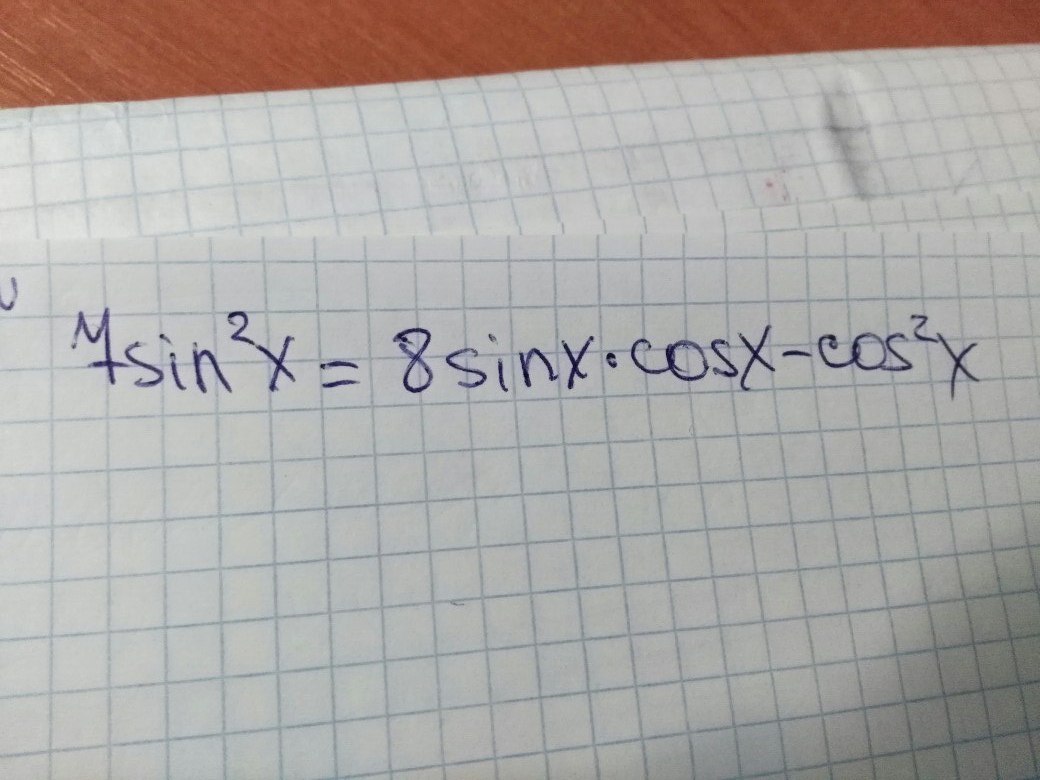 7sin²x = 8sinx·cosx-cos²x